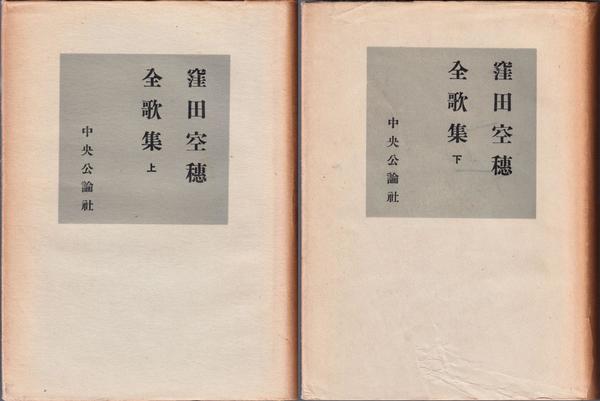 窪田空穂
全歌集 上
中央公論社
窪田空穂
全歌集 下
中央公論社